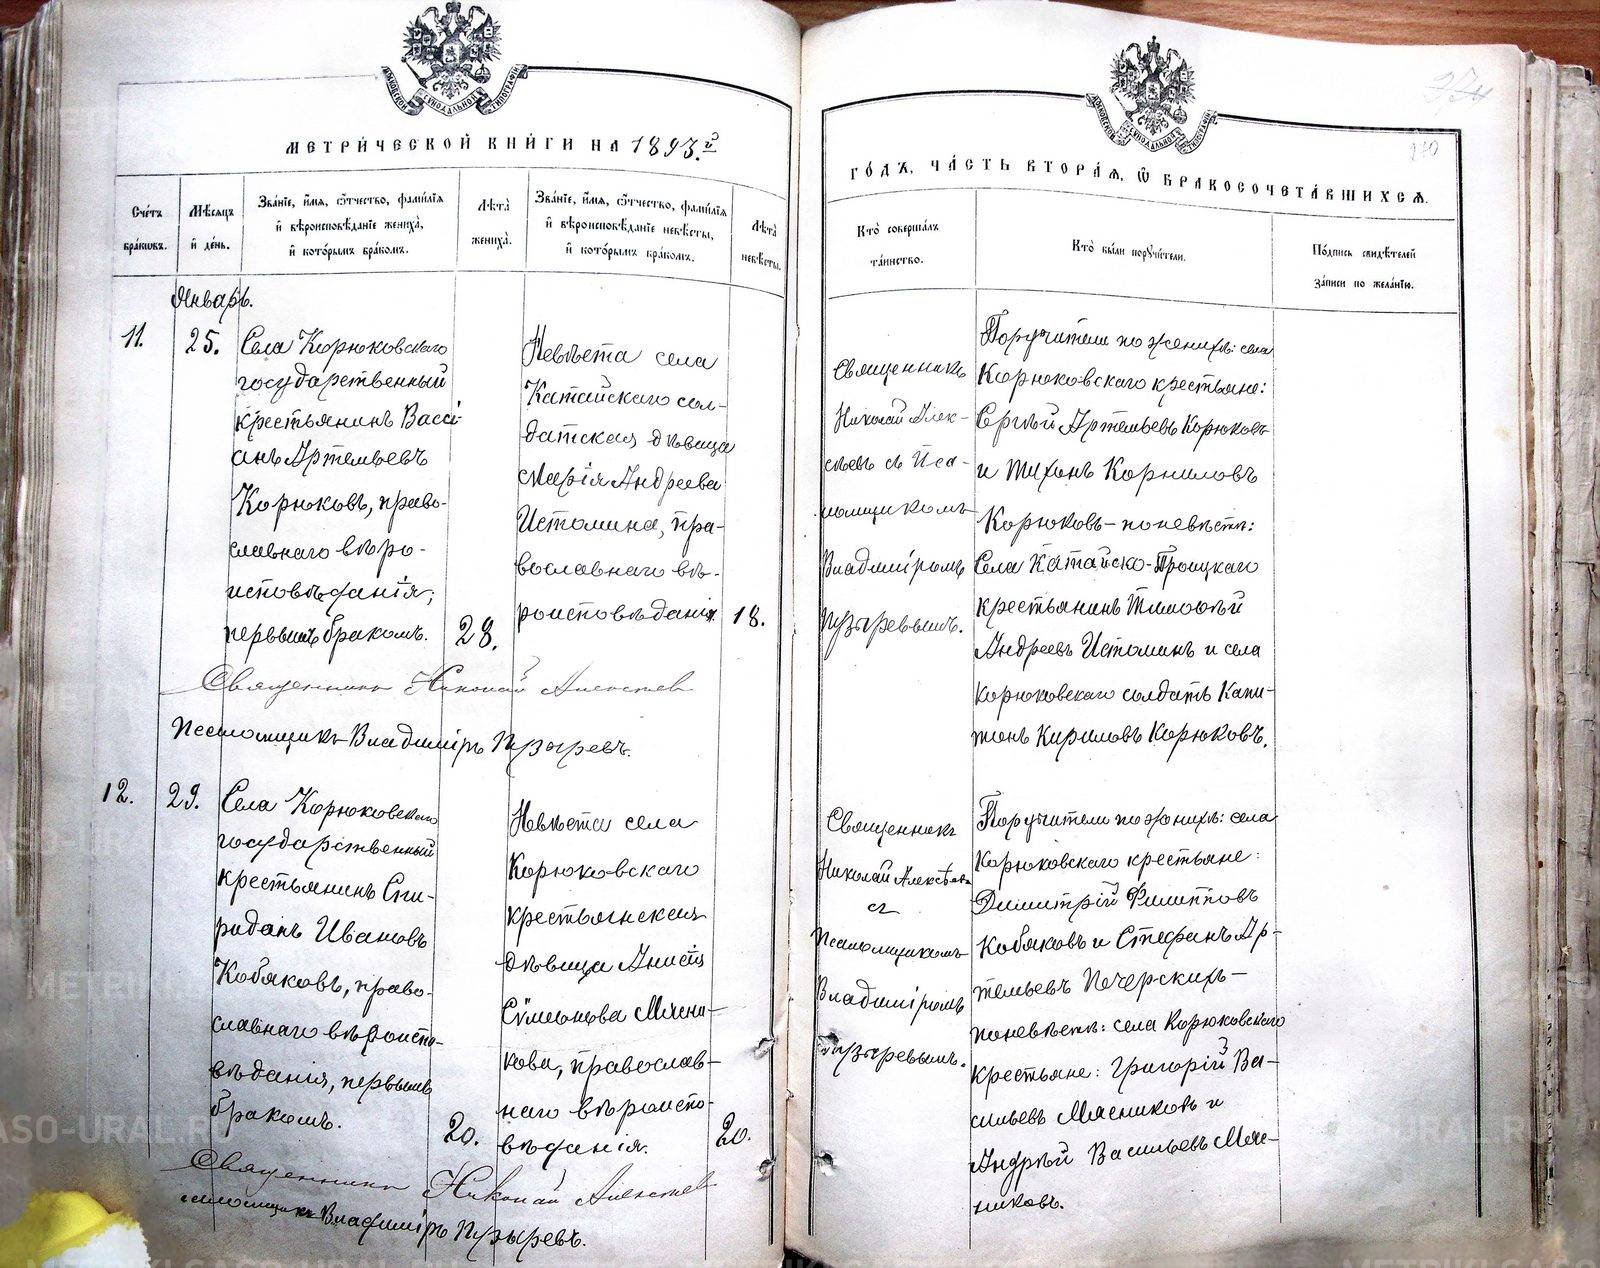 МОСКОВСКОЙ СѴНОДАЛЬНОЙ ТИПОГРАФІИ
МЕТРИ́ЧЕСКОЙ КНИ́ГИ НА 1893.й
Сче́тъ бра́ковъ.
Мѣ́сяцъ и де́нь.
Зва́нїе, и́мѧ, ѻ́тчество, фамі́лїѧ
и҆ вѣроисповѣ́данїе жениха̀,
и҆ кото́рымъ бра́комъ.
Лѣта̀ жениха̀.
Зва́нїе, и́мѧ, ѻ́тчество, фамі́лїѧ
и҆ вѣроисповѣ́данїе невѣ́сты,
и҆ кото́рымъ бра́комъ.
Лѣта̀ невѣ́сты.
Январь.
11.
25.
Села Корюковскаго
государственный
крестьянинъ Васси-
анъ Артемьевъ
Корюковъ, право-
славнаго вѣро-
исповѣданія;
первымъ бракомъ.
28.
Невѣста села
Катайскаго сол-
датская дѣвица
Марія Андреева
Истомина, пра-
вославнаго вѣ-
роисповѣданія.
18.
Священникъ Николай Алексѣевъ
Псаломщикъ Владиміръ Пузыревъ.
12.
29.
Села Корюковскаго
государственный
крестьянинъ Спи-
ридонъ Ивановъ
Кобяковъ, право-
славнаго вѣроиспо-
вѣданія, первымъ
бракомъ.
20.
Невѣста села
Корюковскаго
крестьянская
дѣвица Анисія
Сѵмеонова Мясни-
кова, православ-
наго вѣроиспо-
вѣданія.
20.
Священникъ Николай Алексѣевъ
Псаломщикъ Владиміръ Пузыревъ.
МОСКОВСКОЙ СѴНОДАЛЬНОЙ ТИПОГРАФІИ
270
ГО́ДЪ, ЧА́СТЬ ВТОРА́Ѧ, Ѡ҆ БРАКОСОЧЕТА́ВШИХСѦ.
Кто̀ соверша́лъ
та́инство.
Кто̀ бы́ли порꙋчи́тели.
По́дпись свидѣ́телей
за́писи по жела́нїю.
Священникъ
Николай Алек-
сѣевъ съ Пса-
ломщикомъ
Владиміромъ
Пузыревымъ.
Поручители по женихѣ: села
Корюковскаго крестьяне:
Сергѣй Артемьевъ Корюковъ
и Тихонъ Корниловъ
Корюковъ – по невѣстѣ:
Села Катайско-Троицкаго
крестьянинъ Тимоѳей
Андреевъ Истоминъ и села
Корюковскаго солдатъ Капи-
тонъ Кириловъ Корюковъ.
Священникъ
Николай Алексѣевъ
съ
Псаломщикомъ
Владиміромъ
Пузыревымъ.
Поручители по женихѣ: села
Корюковскаго крестьяне:
Димитрій Филипповъ
Кобяковъ и Стефанъ Ар-
темьевъ Печерскихъ –
по невѣстѣ: села Корюковскаго
крестьяне: Григорій Ва-
сильевъ Мясниковъ и
Андрей Васильевъ Мяс-
никовъ.